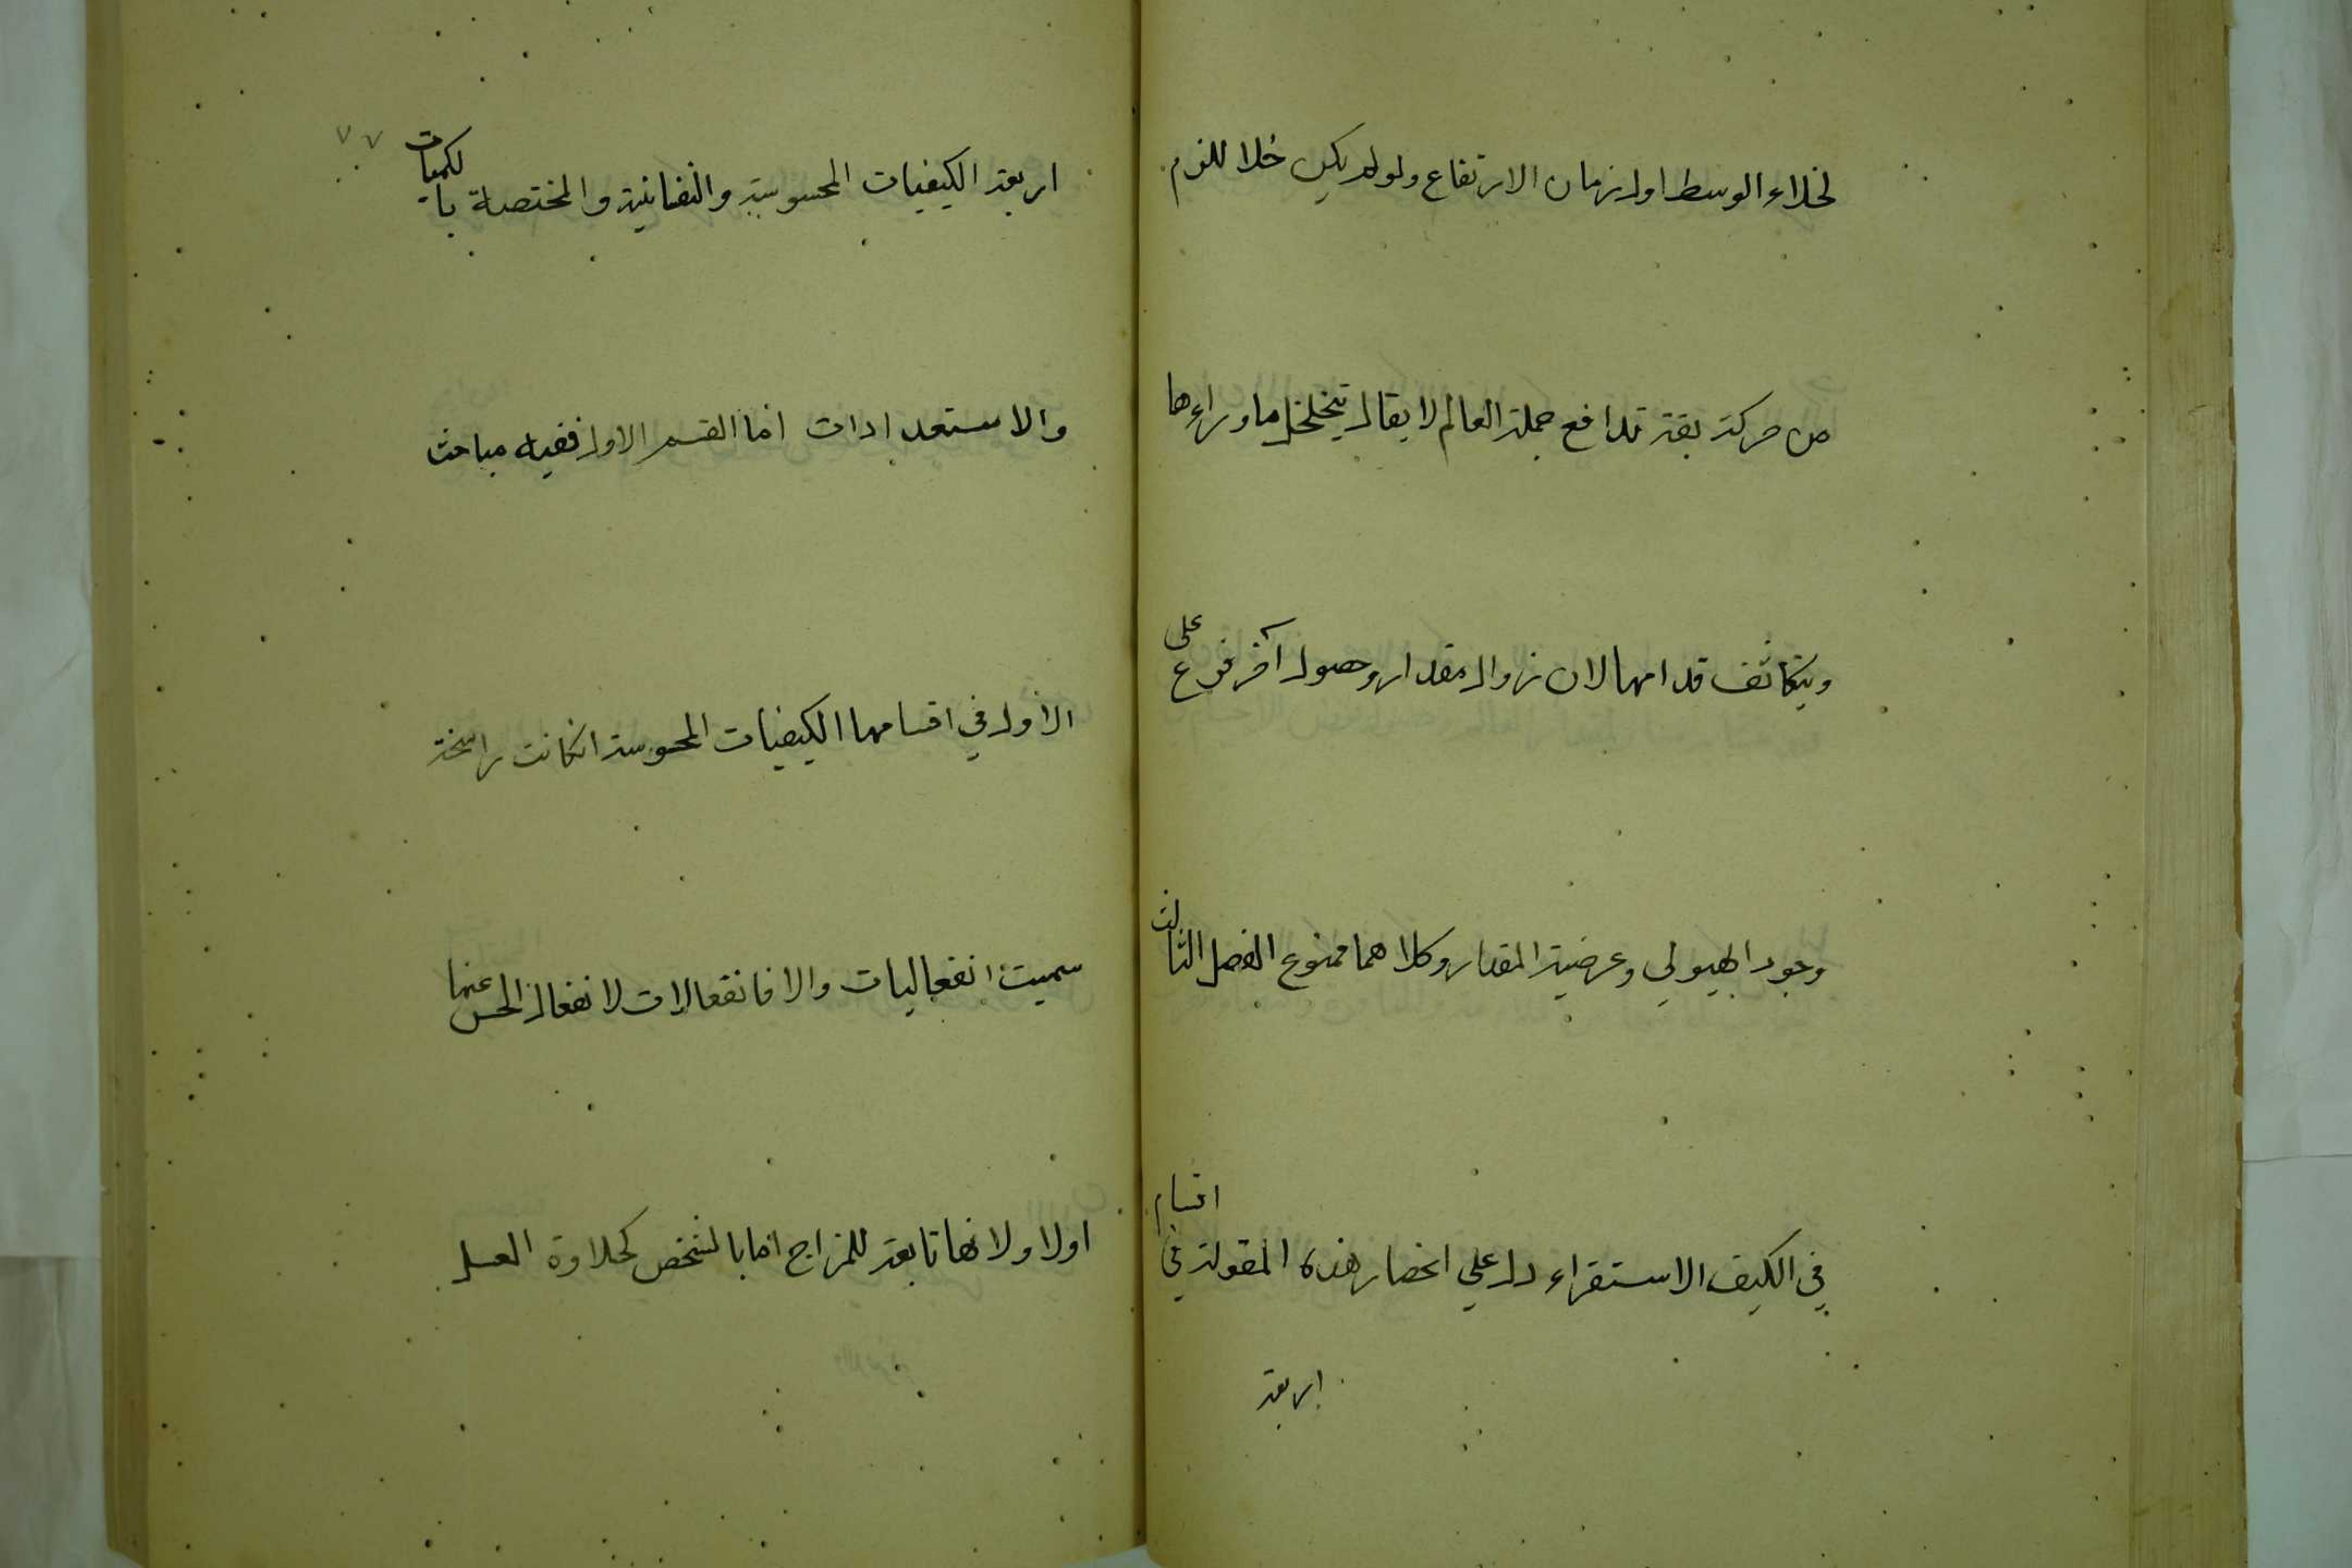 لخلاء الوسط اول زمان الارتفاع ولو لم يكن خلا للزم
من حركة بقة تدافع جملة العالم لا يقال يتخلخل ما وراءها
ويتكاثف قدامها لان زوال مقدار وحصول آخر فرع على
وجود الهيولي وعرضية المقدار وكلاهما ممنوع الفصل الثالث
في الكيف الاستقراء دل علي انحصار هذه المقولة في اقسام
اربعة
٧٧
اربعة الكيفيات المحسوسة والنفسانية والمختصة بالكميات
والاستعدادات اما القسم الاول ففيه مباحث
الاول في اقسامها الكيفيات المحسوسة انكانت راسخة
سميت انفعاليات والا فانفعالات لانفعال الحس عنها
اولا ولانها تابعة للمزاج اما بالشخص كحلاوة العسل